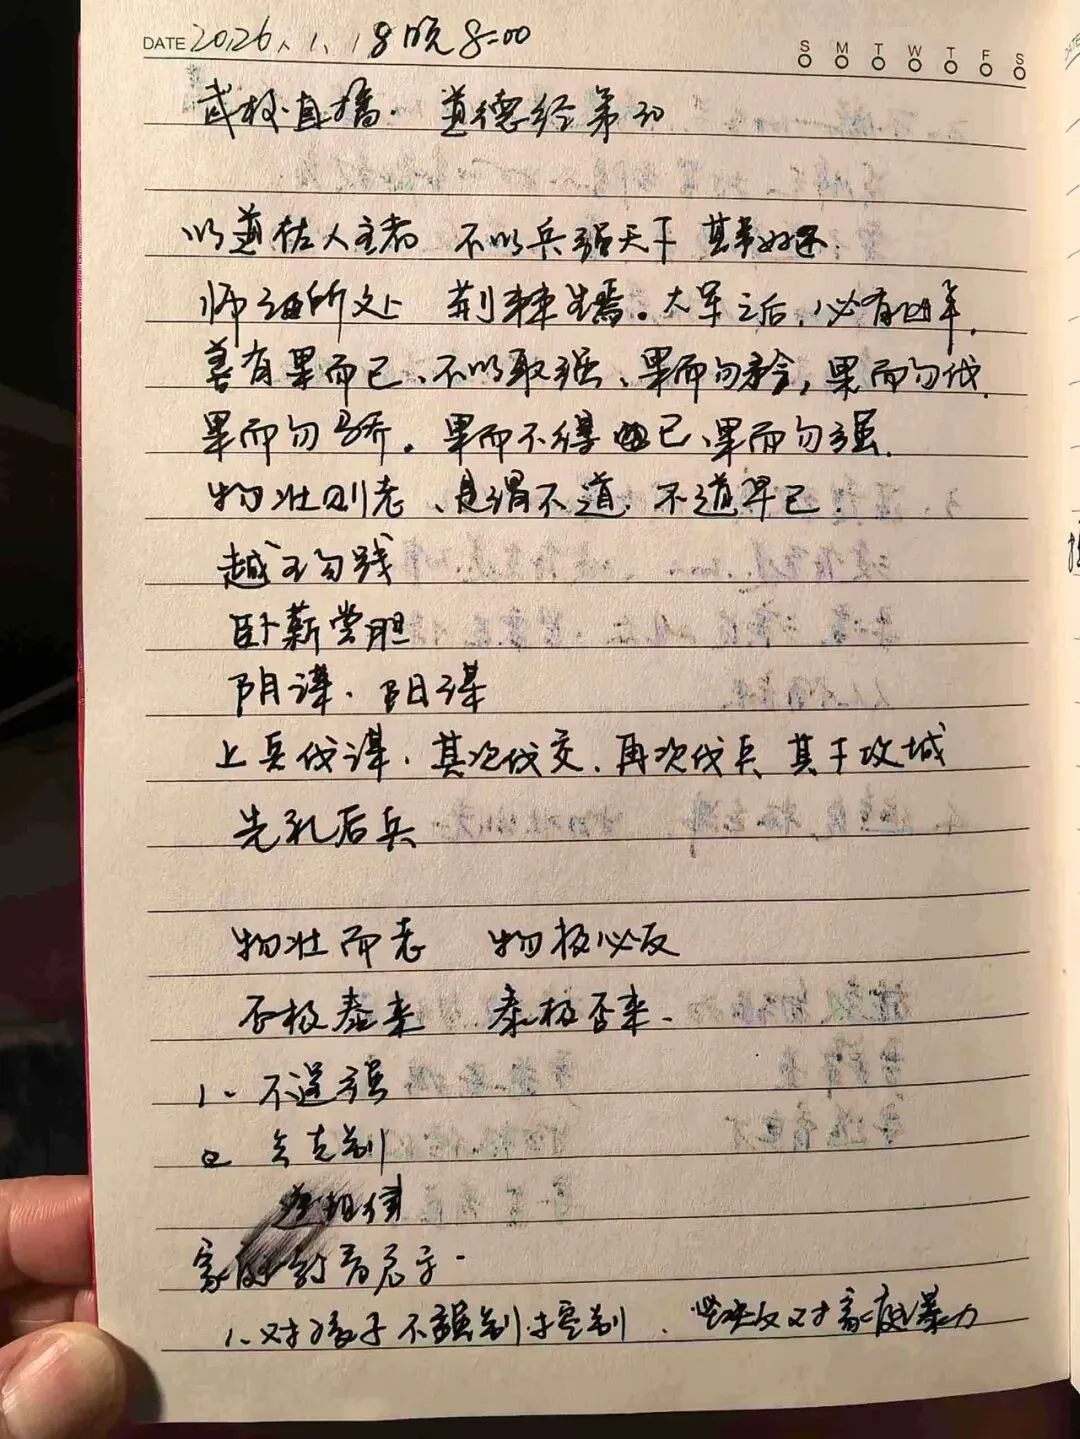 DATE 2026、1、18晚8:00
S M T W T F S
武极·直播·道德经第30
以道佐人主者 不以兵强天下 其事好还.
师之所处 荆棘生焉。大军之后,必有凶年.
善有果而已、不以取强、果而勿矜,果而勿伐.
果而勿骄。果而不得已、果而勿强.
物壮则老、是谓不道.不道早已.
越王勾践
卧薪尝胆
阴谋、阳谋
上兵伐谋.其次伐交.再次伐兵 其下攻城
先礼后兵
物壮而老 物极必反
否极泰来 泰极否来.
1、不逞强
2 会克制
相信
家庭教育启示-
1、对孩子不强制控制、坚决反对家庭暴力